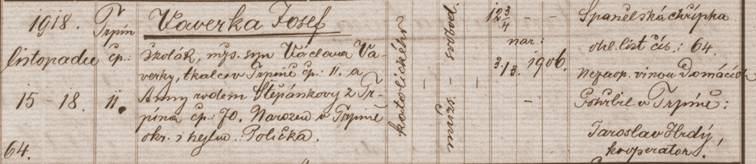 1918.
listopadu
15 - 18.
64.
Trpín
čp.
11.
Vaverka Josef
školák, mjs. syn Václava Va-
verky, tkalce v Trpíně čp. 11. a
Anny rodem Štěpánkovy z Tr-
pína čp. 70. Narozen v Trpíně
okr. i hejtm. Polička.
katolického
mužs. - svobod.
12 3/4 - -
nar:
3/3. 1906.
-
Španělská chřipka
ohl. list čís.: 64.
Nezaop. vinou Domácích
Pohřbil v Trpíně:
Jaroslav Hrdý,
kooperator.